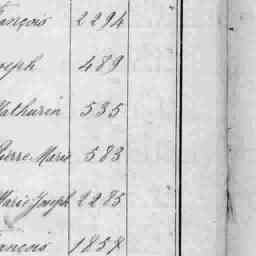 François 2294
Joseph 489
Mathurin 535
Pierre Marie 583
Marie Joseph 2285
François 1857